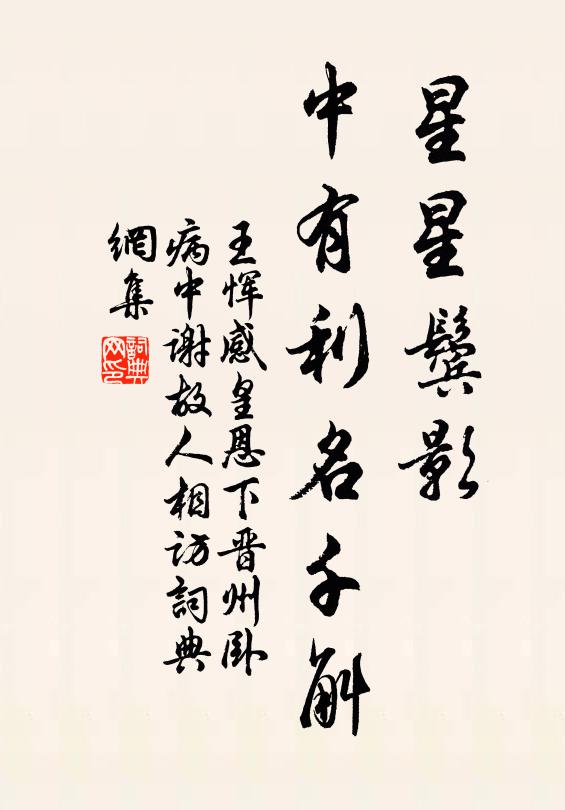 星星鬢影
中有利名千斛
王惲感皇恩下晋州卧
病中谢故人相访詞典
網集
詞典网印